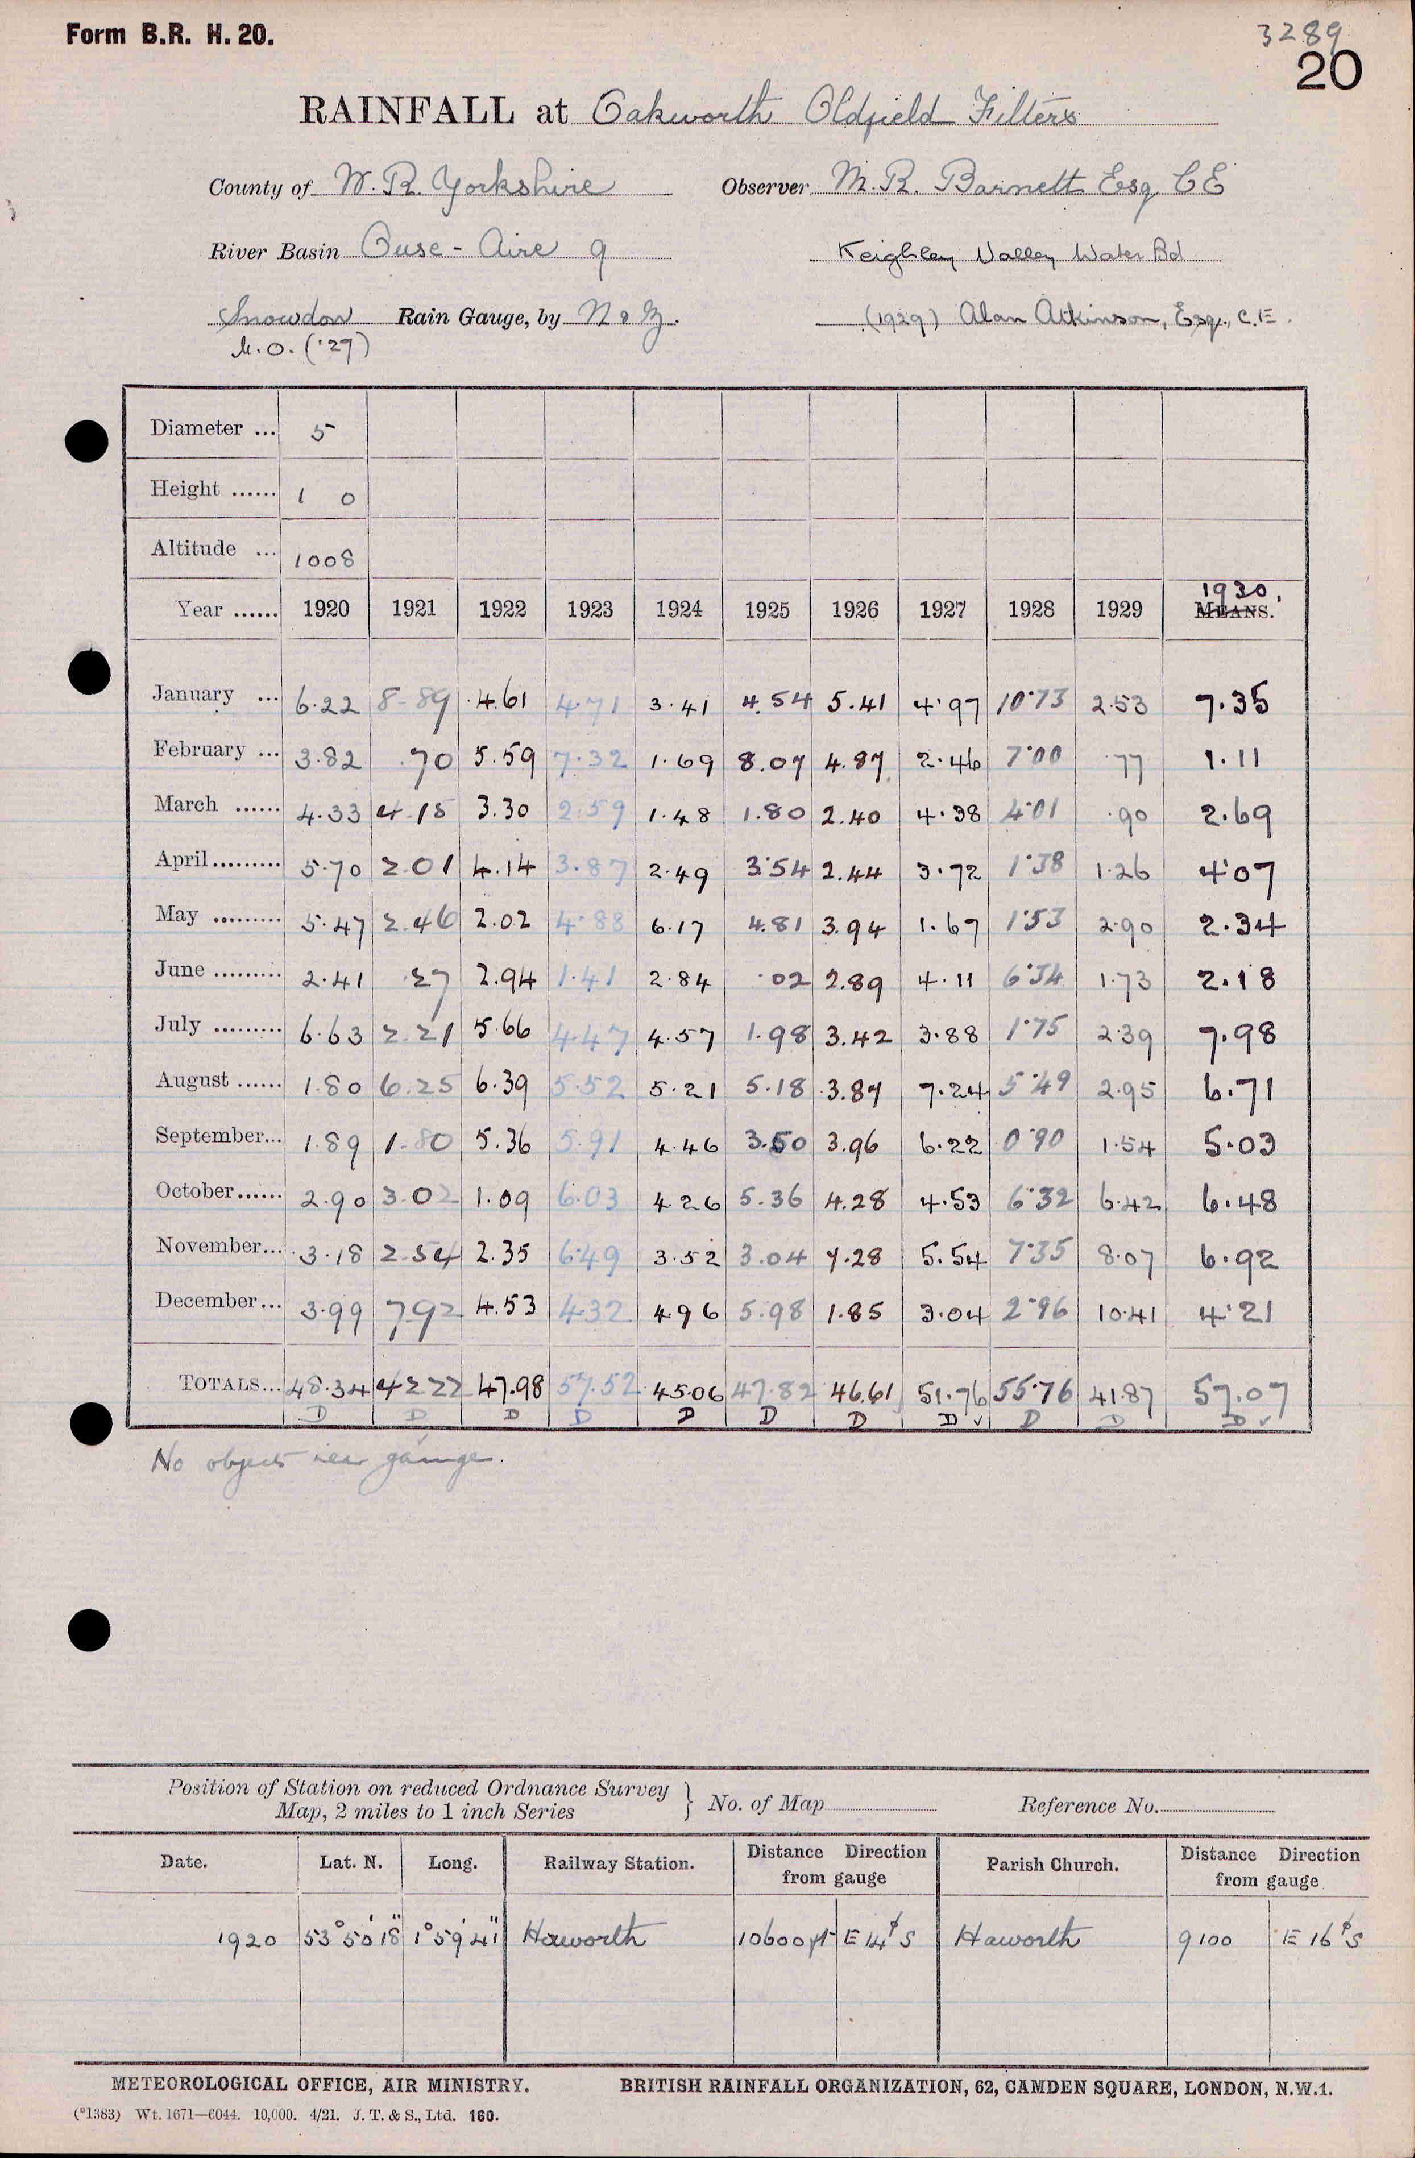 Form B.R. H. 20.
3289
20
RAINFALL at Oakworth Oldfield Filters
County of W. R. Yorkshire Observer M. R. Barnett Esq C E
River Basin Ouse - Aire 9 Keighley Valley Water Bd
Snowdon Rain Gauge, by N & Z. (1929) Alan Atkinson, Esq., C.E.
M.O. ('27)
Diameter ... 5
Height ...... 1 0
Altitude ... 1008
1930.
Year ...... 1920 1921 1922 1923 1924 1925 1926 1927 1928 1929 MEANS.
January ... 6.22 8.89 4.61 4.71 3.41 4.54 5.41 4.97 10.73 2.53 7.35
February ... 3.82 .70 5.59 7.32 1.69 8.07 4.87 2.46 7.00 .77 1.11
March ...... 4.33 4.15 3.30 2.59 1.48 1.80 2.40 4.38 4.01 .90 2.69
April......... 5.70 2.01 4.14 3.87 2.49 3.54 2.44 3.72 1.38 1.26 4.07
May ......... 5.47 2.46 2.02 4.88 6.17 4.81 3.94 1.67 1.53 2.90 2.34
June ......... 2.41 .27 2.94 1.41 2.84 .02 2.89 4.11 6.34 1.73 2.18
July ......... 6.63 2.21 5.66 4.47 4.57 1.98 3.42 3.88 1.75 2.39 7.98
August ...... 1.80 6.25 6.39 5.52 5.21 5.18 3.87 7.24 5.49 2.95 6.71
September... 1.89 1.80 5.36 5.91 4.46 3.50 3.96 6.22 0.90 1.54 5.03
October...... 2.90 3.02 1.09 6.03 4.26 5.36 4.28 4.53 6.32 6.42 6.48
November... 3.18 2.54 2.35 6.49 3.52 3.04 7.28 5.54 7.35 8.07 6.92
December... 3.99 7.92 4.53 4.32 4.96 5.98 1.85 3.04 2.96 10.41 4.21
TOTALS... 48.34 42.22 47.98 57.52 45.06 47.82 46.61 51.76 55.76 41.87 57.07
D D D D D D D D ✓ D D D ✓
No objects near gauge.
Position of Station on reduced Ordnance Survey
Map, 2 miles to 1 inch Series } No. of Map Reference No.
Date. Lat. N. Long. Railway Station. Distance Direction from gauge Parish Church. Distance Direction from gauge
1920 53° 50' 18" 1° 59' 41" Haworth 10600 ft E 14° S Haworth 9100 E 16° S
METEOROLOGICAL OFFICE, AIR MINISTRY. BRITISH RAINFALL ORGANIZATION, 62, CAMDEN SQUARE, LONDON, N.W.1.
(*1383) Wt. 1671—6044. 10,000. 4/21. J. T. & S., Ltd. 160.